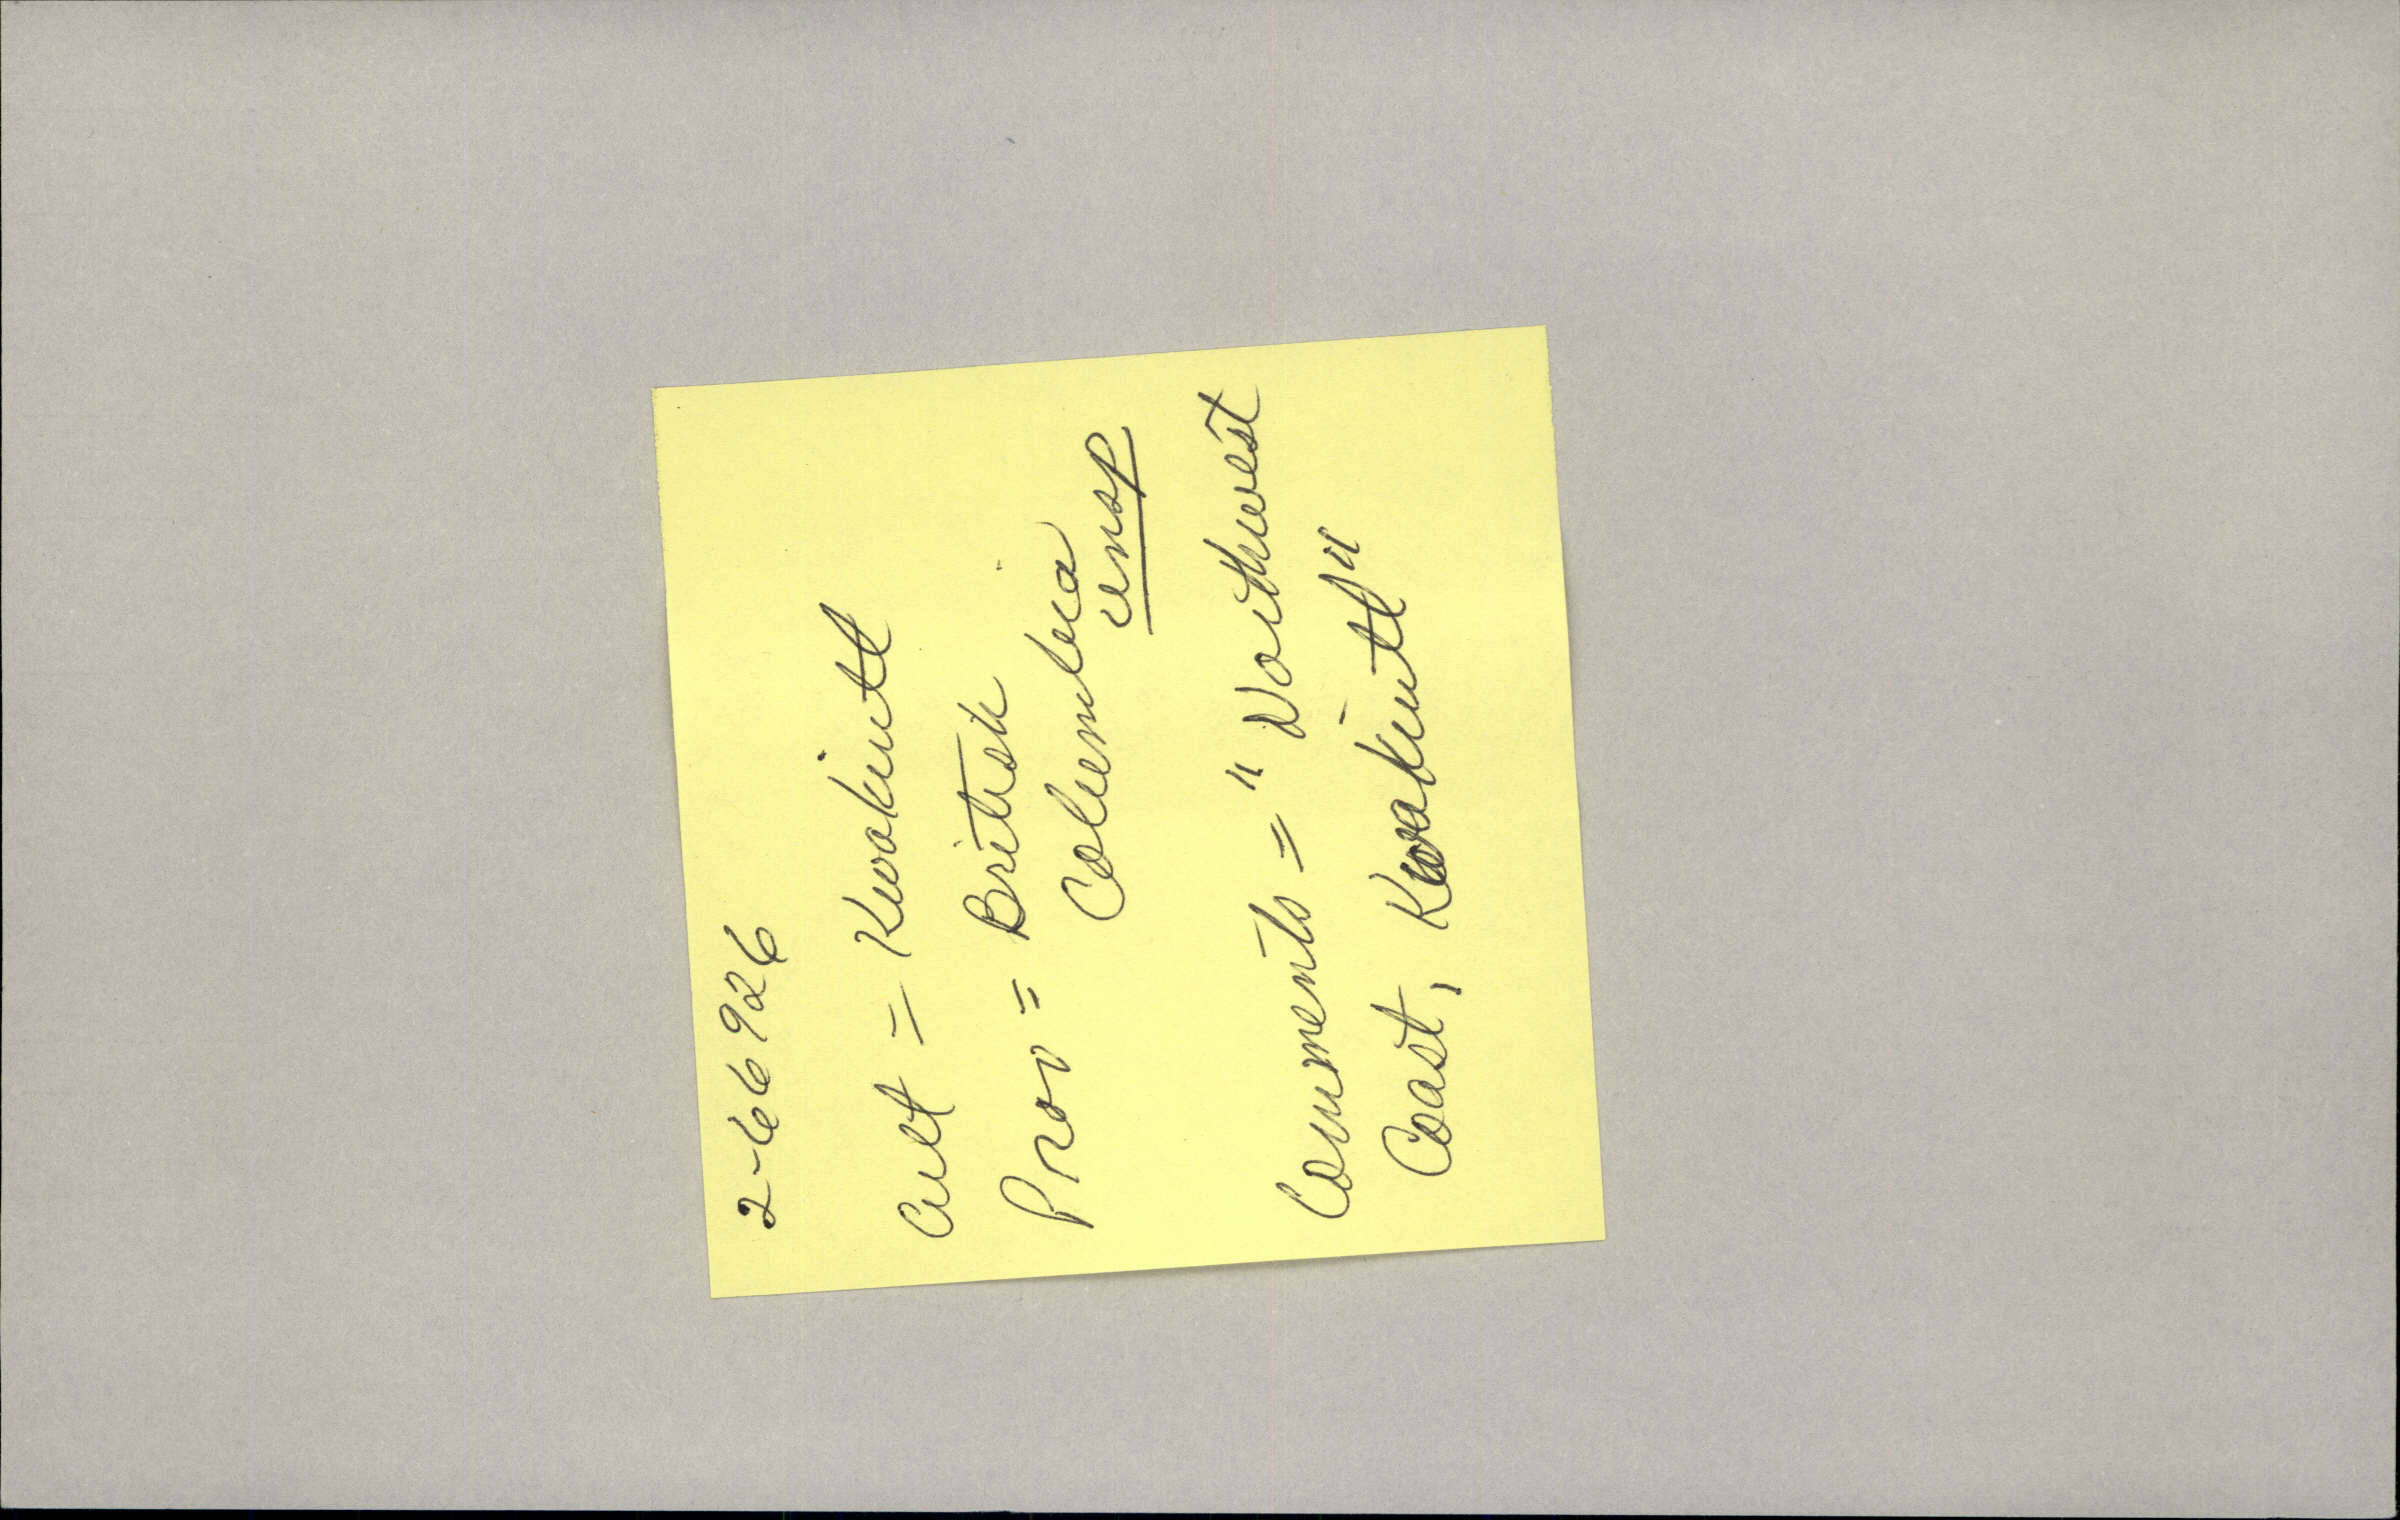 2-66926
Cult = Kwakiutl
Prov = British
Columbia
unsp
Comments = "Northwest
Coast, Kwakiutl"